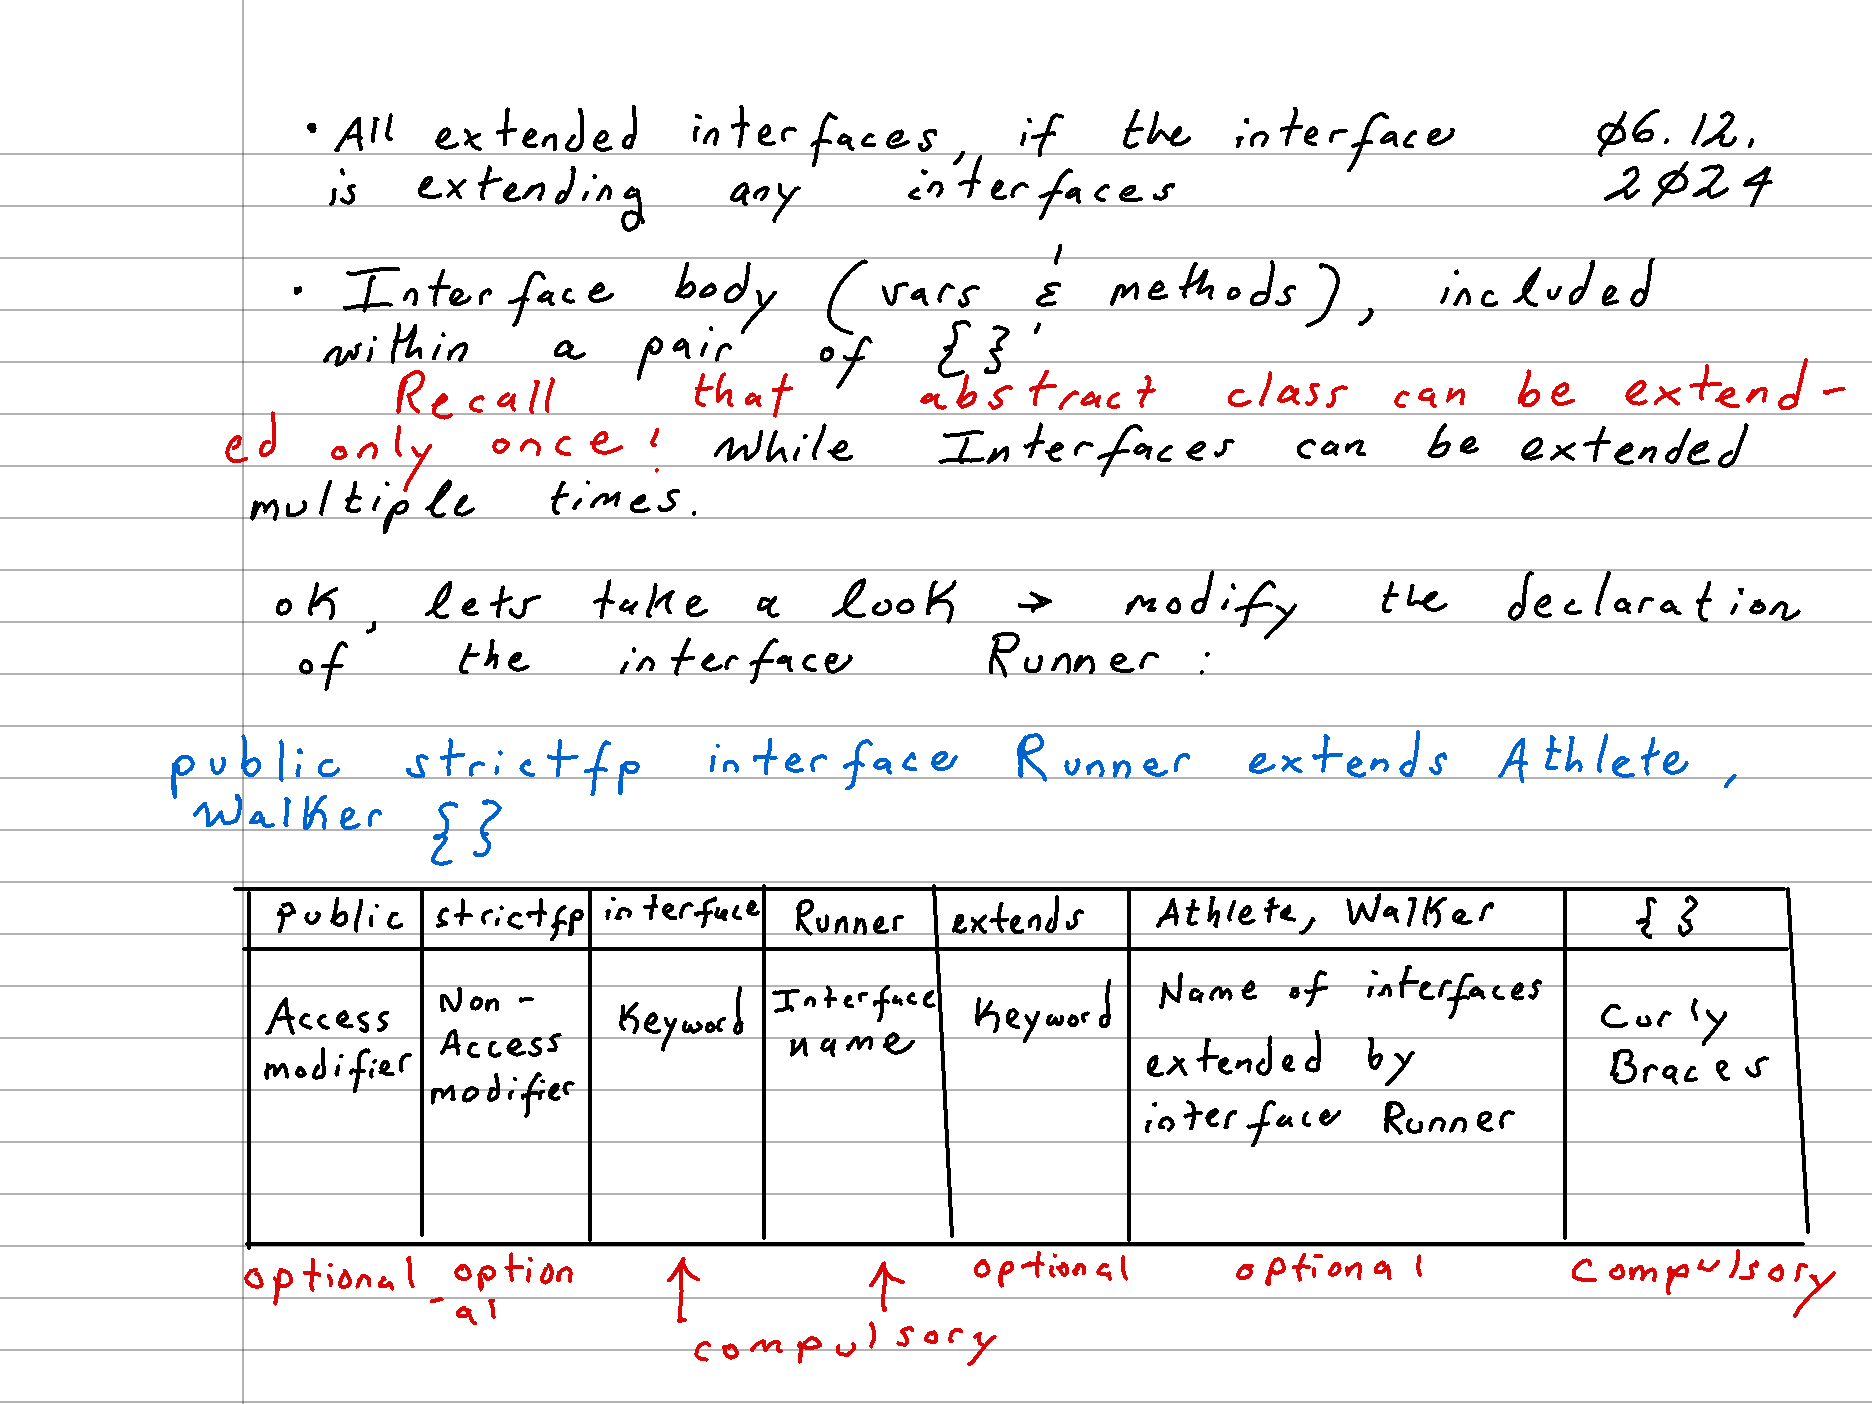 • All extended interfaces, if the interface
is extending any interfaces
ø6.12.
2ø24
• Interface body (vars & methods), included
within a pair of { }
Recall that abstract class can be extend-
ed only once! While Interfaces can be extended
multiple times.
OK, lets take a look → modify the declaration
of the interface Runner:
public strictfp interface Runner extends Athlete,
Walker { }
public strictfp interface Runner extends Athlete, Walker { }
Access
modifier
Non-
Access
modifier
Keyword
Interface
name
Keyword
Name of interfaces
extended by
interface Runner
Curly
Braces
optional
option
-al
↑ ↑
compulsory
optional
optional
compulsory